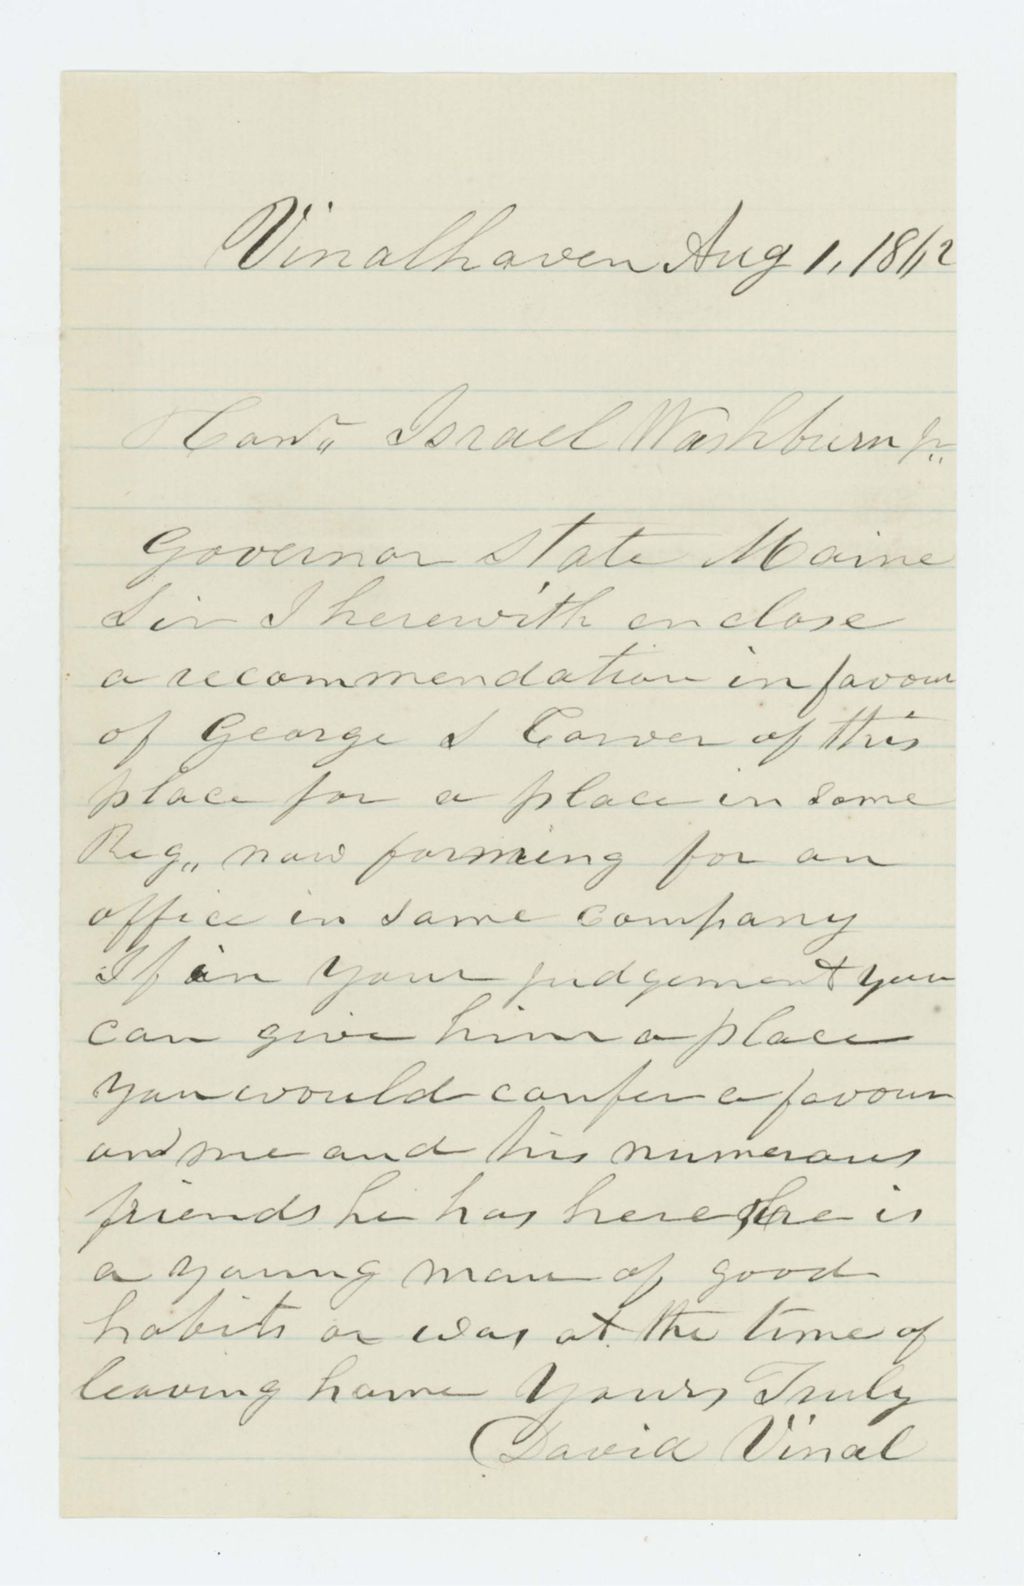 Vinalhaven Aug 1, 1862
Hon,, Israel Washburn Jr,,
Governor State Maine
Sir I herewith enclose
a recommendation in favour
of George S Carver of this
place for a place in some
Reg,, now forming for an
office in same company
If in your judgement you
can give him a place
you would confer a favour
on me and his numerous
friends he has here he is
a young man of good
habits or was at the time of
leaving home Yours Truly
David Vinal